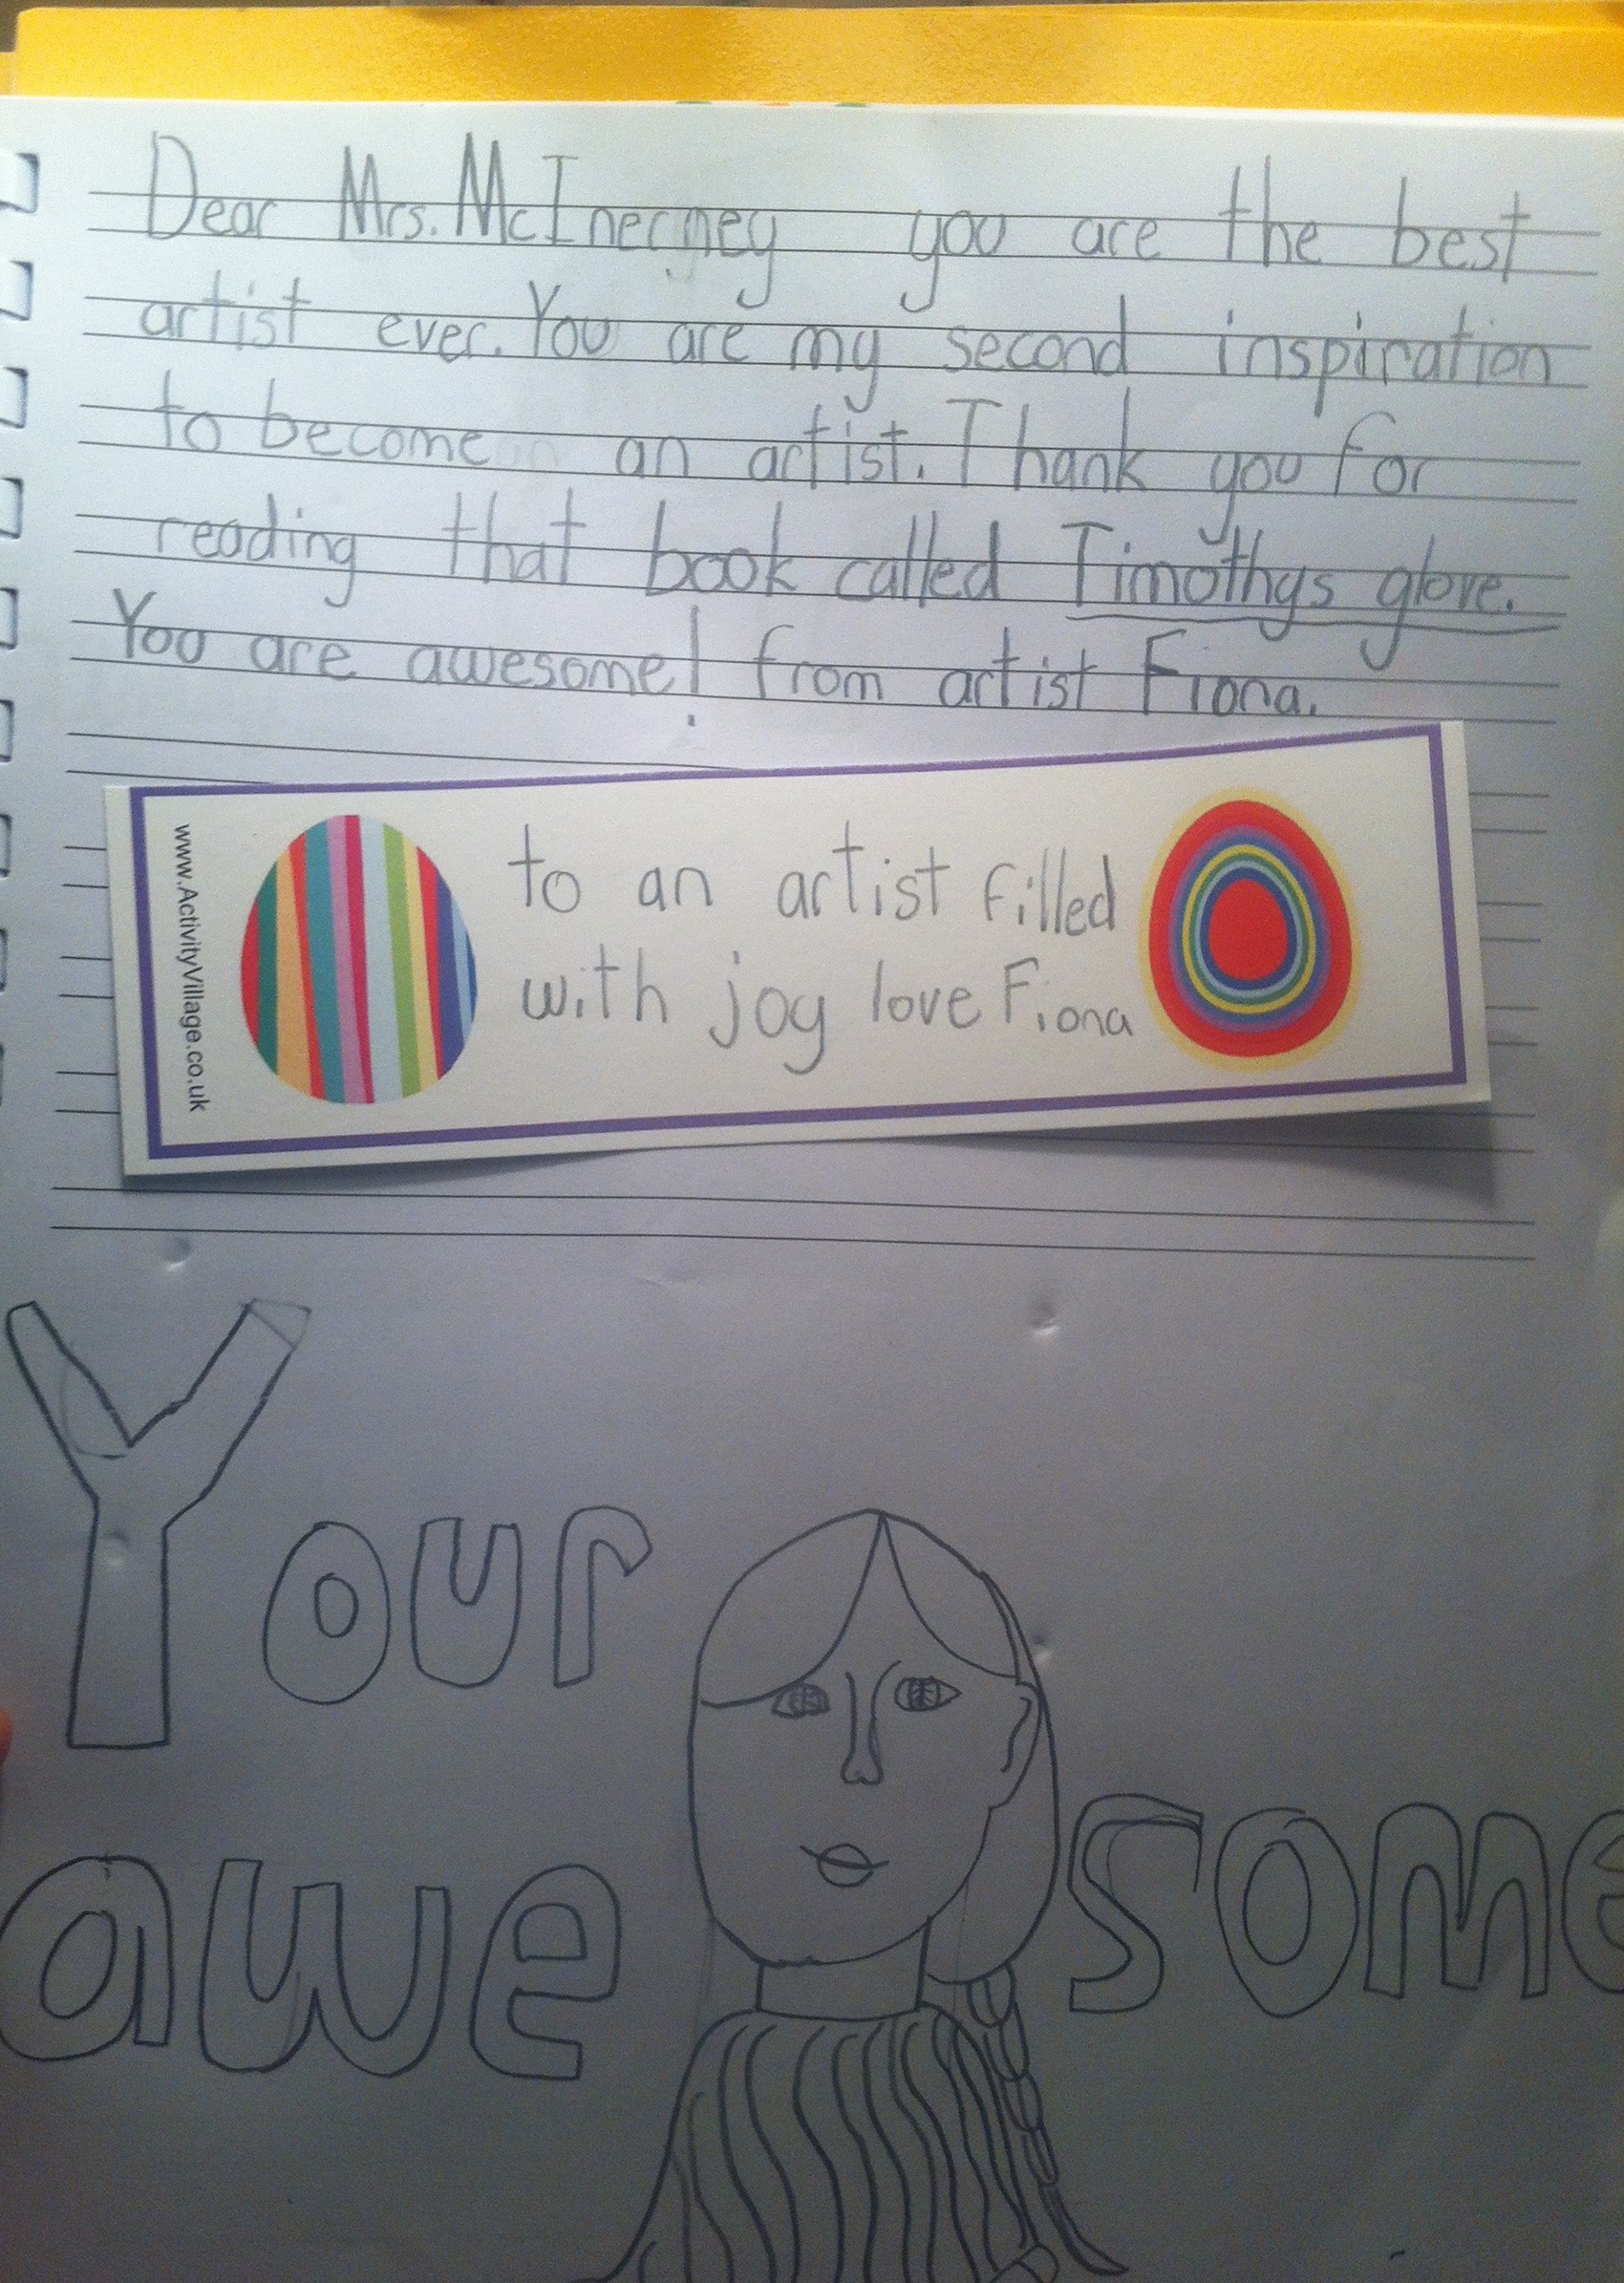 Dear Mrs. McInerney you are the best
artist ever. You are my second inspiration
to become an artist. Thank you for
reading that book called Timothys glove.
You are awesome! from artist Fiona.
www.ActivityVillage.co.uk
to an artist filled
with joy love Fiona
Your
awe some